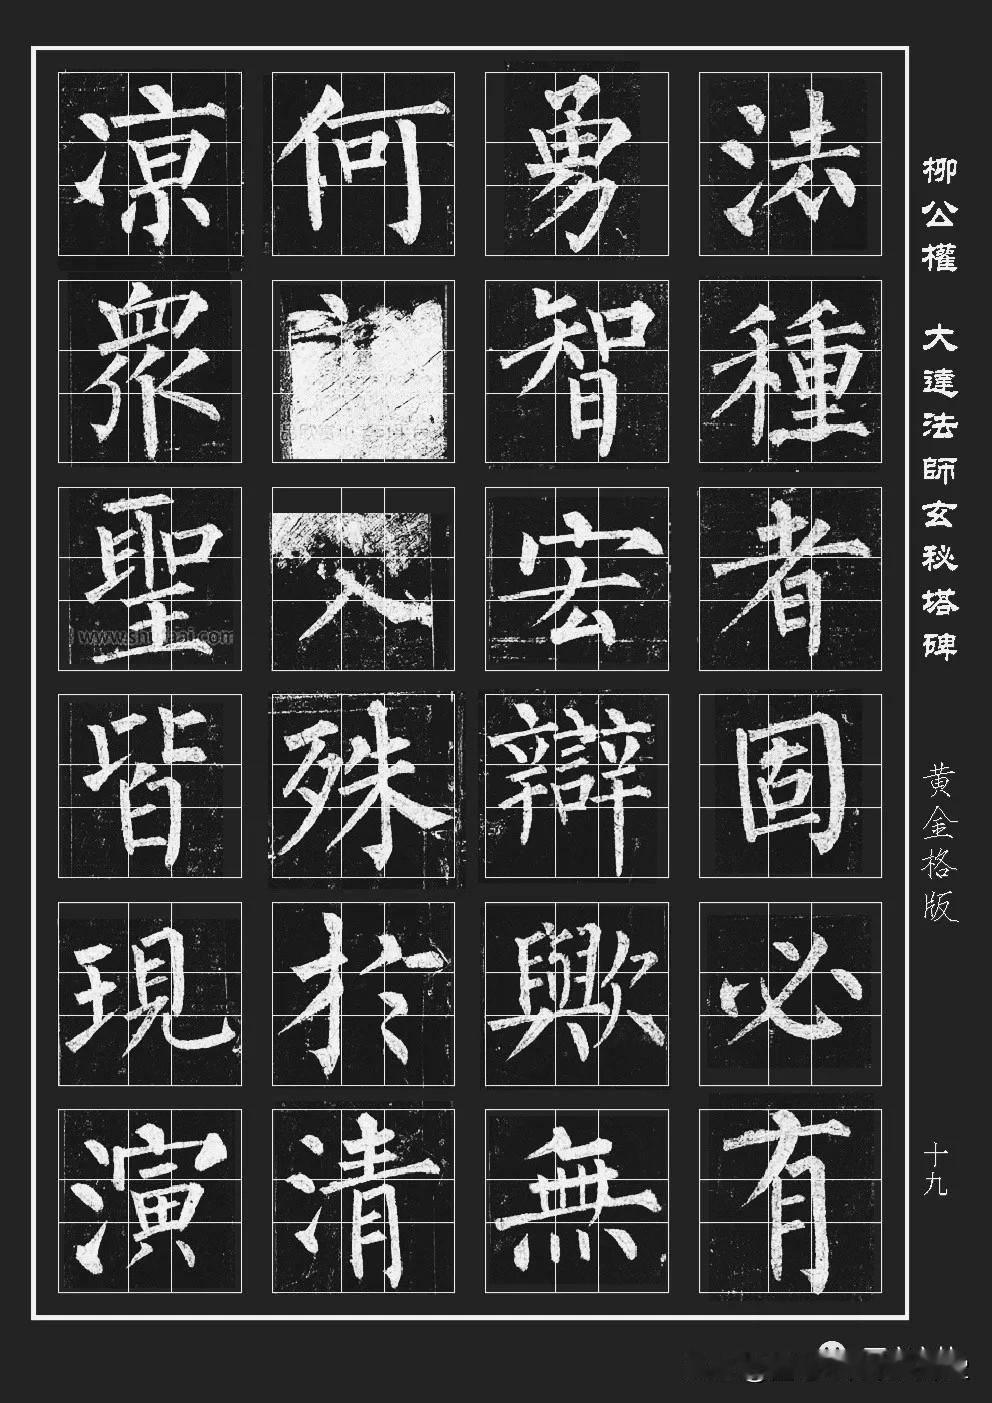 柳公權 大達法師玄秘塔碑
黄金格版
十九
法種者固必有
勇智宏辯歟無
何入殊於清
凉衆聖皆現演
www.shufbai.com